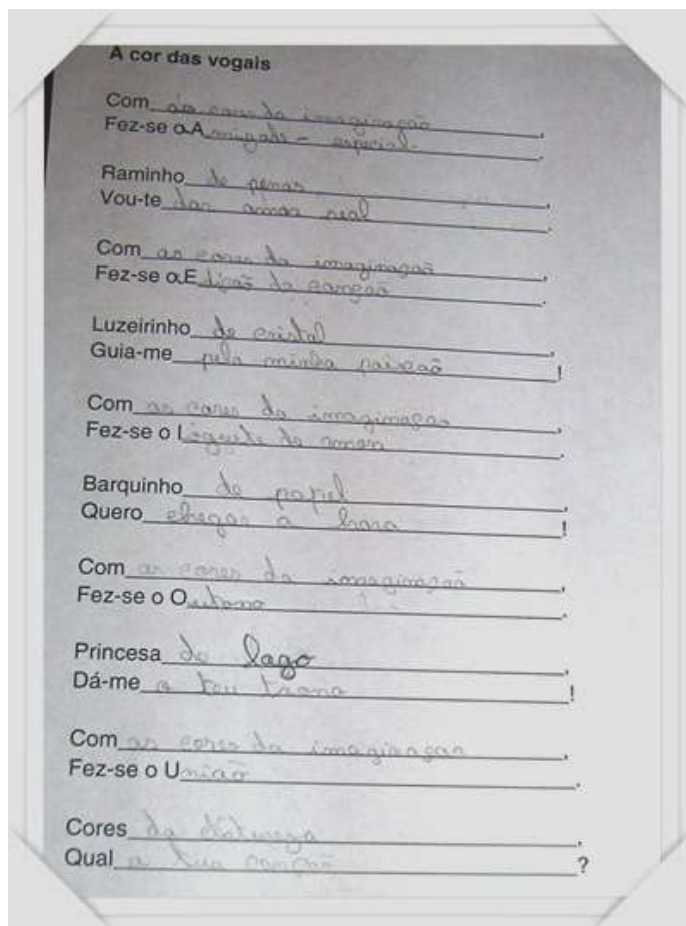 A cor das vogais
Com as cores da imaginação,
Fez-se o A mizade - especial.
Raminho de penas,
Vou-te dar amor real.
Com as cores da imaginação,
Fez-se a E dição da canção.
Luzeirinho de cristal,
Guia-me pela minha paixão!
Com as cores da imaginação,
Fez-se o I do amor.
Barquinho de papel,
Quero chegar a!
Com as cores da imaginação,
Fez-se o Outono.
Princesa do lago,
Dá-me o teu trono!
Com as cores da imaginação,
Fez-se o União.
Cores da,
Qual a tua canção?